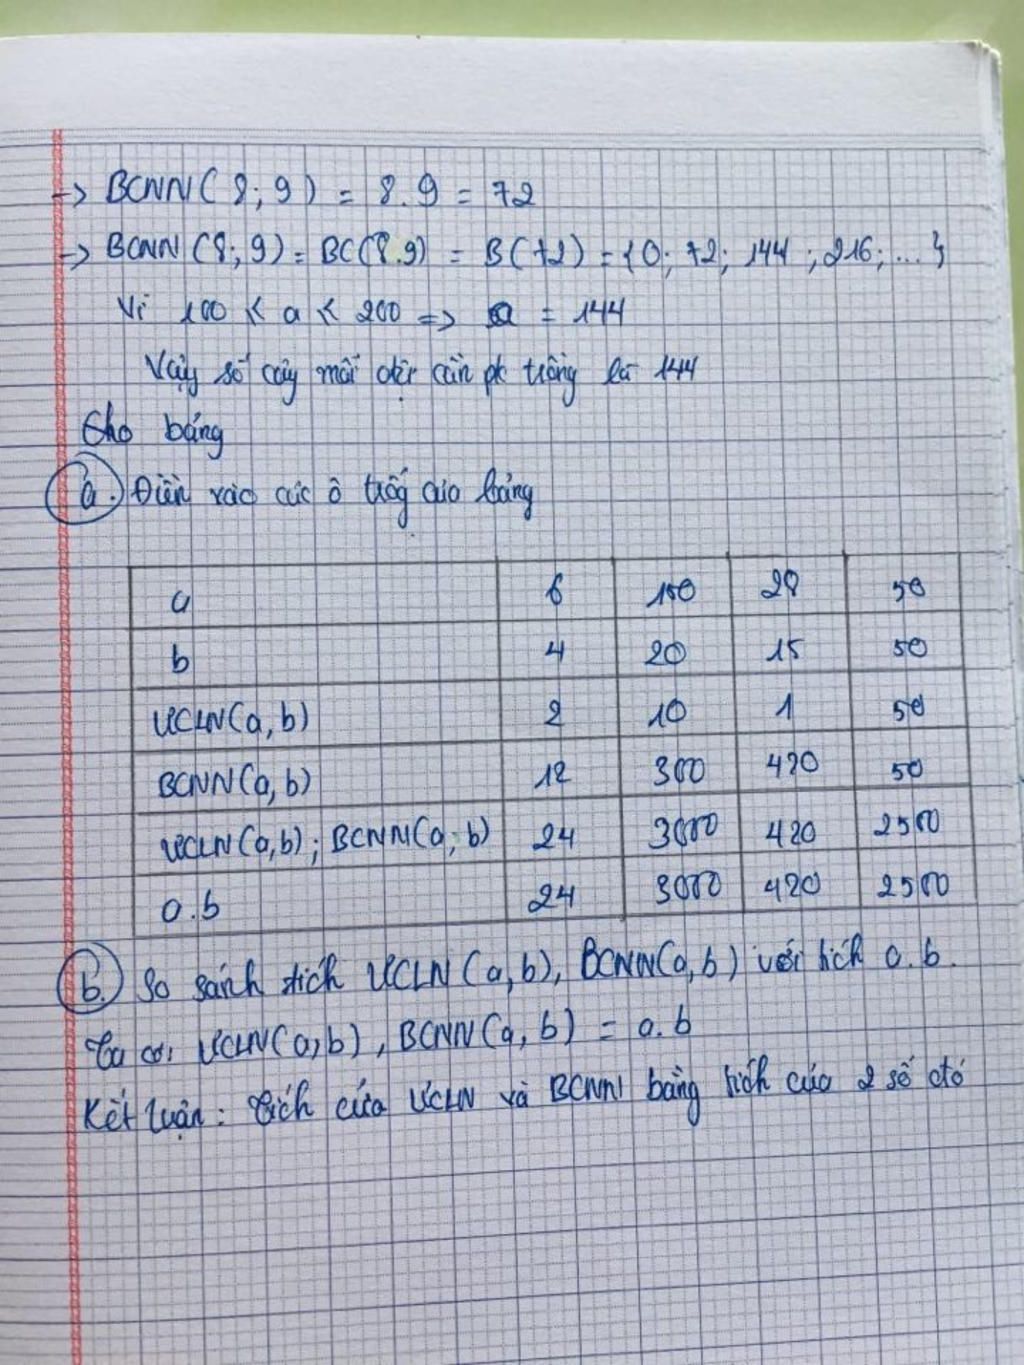 -> BCNN(8; 9) = 8.9 = 72
-> BCNN (8; 9) = BC(8.9) = B(72) = {0; 72; 144; 216; ...}
Vì 100 < a < 200 => a = 144
Vậy số cây mỗi đội cần pk trồng là 144
Cho bảng
a. Điền vào các ô trống của bảng
a 6 150 28 50
b 4 20 15 50
ƯCLN(a,b) 2 10 1 50
BCNN(a,b) 12 300 420 50
ƯCLN(a,b); BCNN(a,b) 24 3000 420 2500
a.b 24 3000 420 2500
b. So sánh tích ƯCLN (a,b), BCNN(a,b) với tích a.b.
Ta có: ƯCLN(a,b), BCNN(a,b) = a.b
Kết luận: Tích của ƯCLN và BCNN bằng tích của 2 số đó